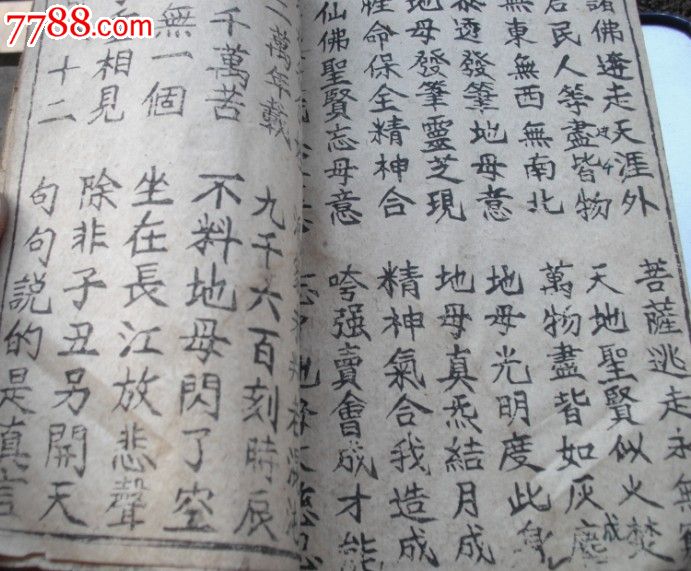 諸佛逩走天涯外 菩薩逃走永無
居民人等盡皆物 天地聖賢似火焚
無東無西無南北 萬物盡皆如灰塵 成
透發筆地母意 地母光明度此身
地母發筆靈芝現 地母真炁結月成
性命保全精神合 精神氣合我造成
仙佛聖賢忘母意 誇强賣會成才能
二萬年載 九千六百刻時辰
千萬苦 不料地母閃了空
無一個 坐在長江放悲聲
相見 除非子丑另開天
十二 句句説的是真言
7788.com